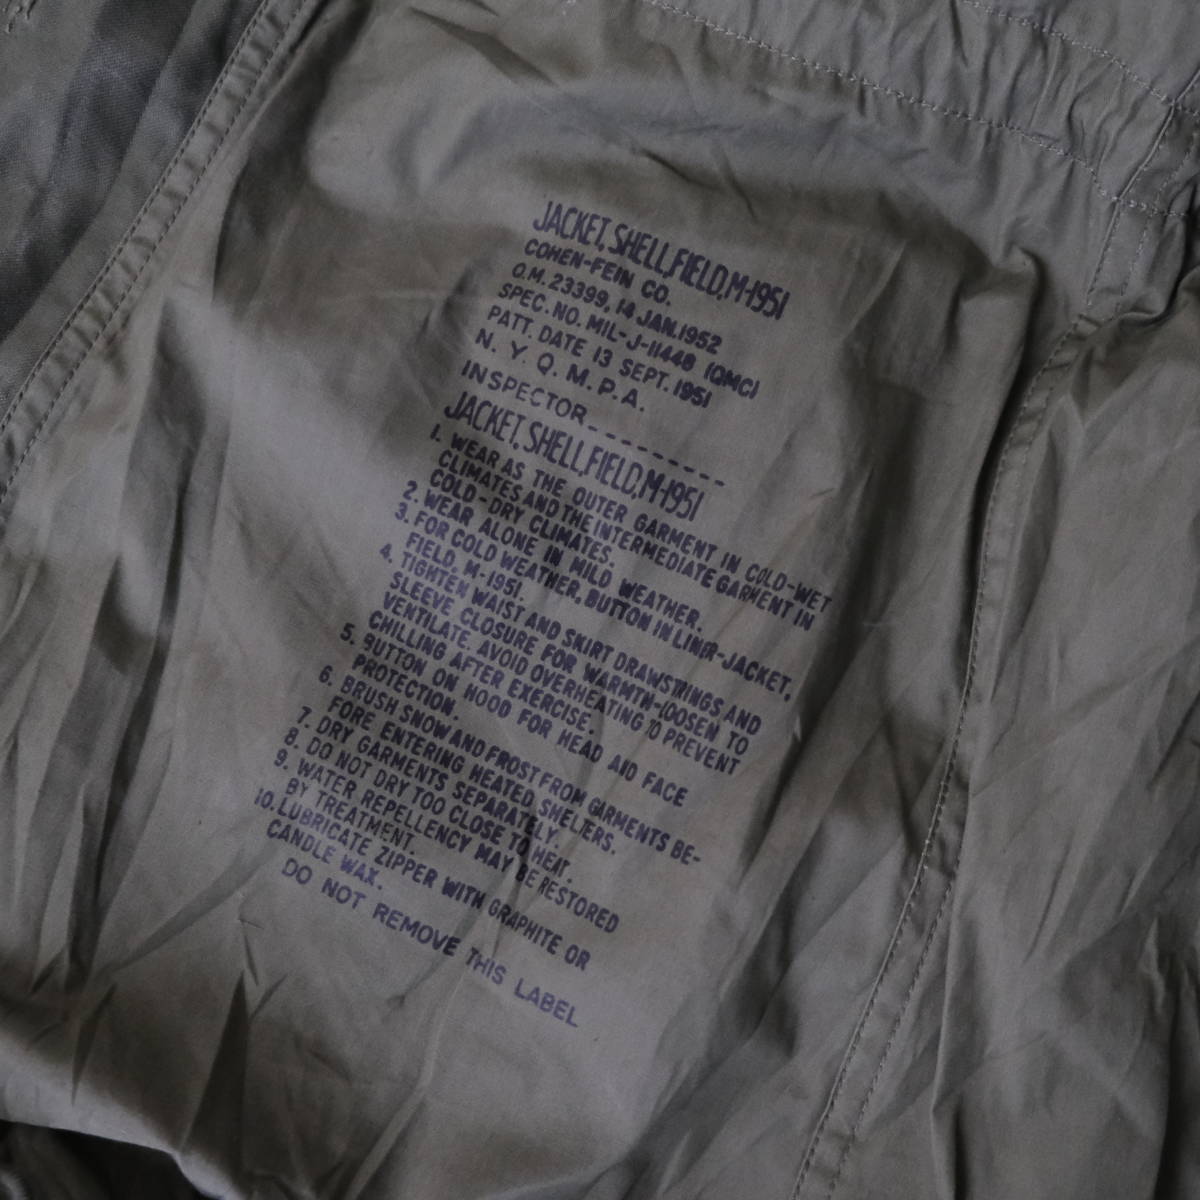 JACKET, SHELL, FIELD, M-1951
COHEN-FEIN CO.
Q.M. 23399, 14 JAN. 1952
SPEC. NO. MIL-J-11448 (QMC)
PATT. DATE 13 SEPT. 1951
N. Y. Q. M. P. A.
INSPECTOR
JACKET, SHELL, FIELD, M-1951
1. WEAR AS THE OUTER GARMENT IN COLD-WET
CLIMATES AND THE INTERMEDIATE GARMENT IN
COLD-DRY CLIMATES.
2. WEAR ALONE IN MILD WEATHER.
3. FOR COLD WEATHER, BUTTON IN LINER-JACKET,
FIELD, M-1951.
4. TIGHTEN WAIST AND SKIRT DRAWSTRINGS AND
SLEEVE CLOSURE FOR WARMTH-LOOSEN TO
VENTILATE. AVOID OVERHEATING TO PREVENT
CHILLING AFTER EXERCISE.
5. BUTTON ON HOOD FOR HEAD AND FACE
PROTECTION.
6. BRUSH SNOW AND FROST FROM GARMENTS BE-
FORE ENTERING HEATED SHELTERS.
7. DRY GARMENTS SEPARATELY.
8. DO NOT DRY TOO CLOSE TO HEAT.
9. WATER REPELLENCY MAY BE RESTORED
BY TREATMENT.
10. LUBRICATE ZIPPER WITH GRAPHITE OR
CANDLE WAX.
DO NOT REMOVE THIS LABEL